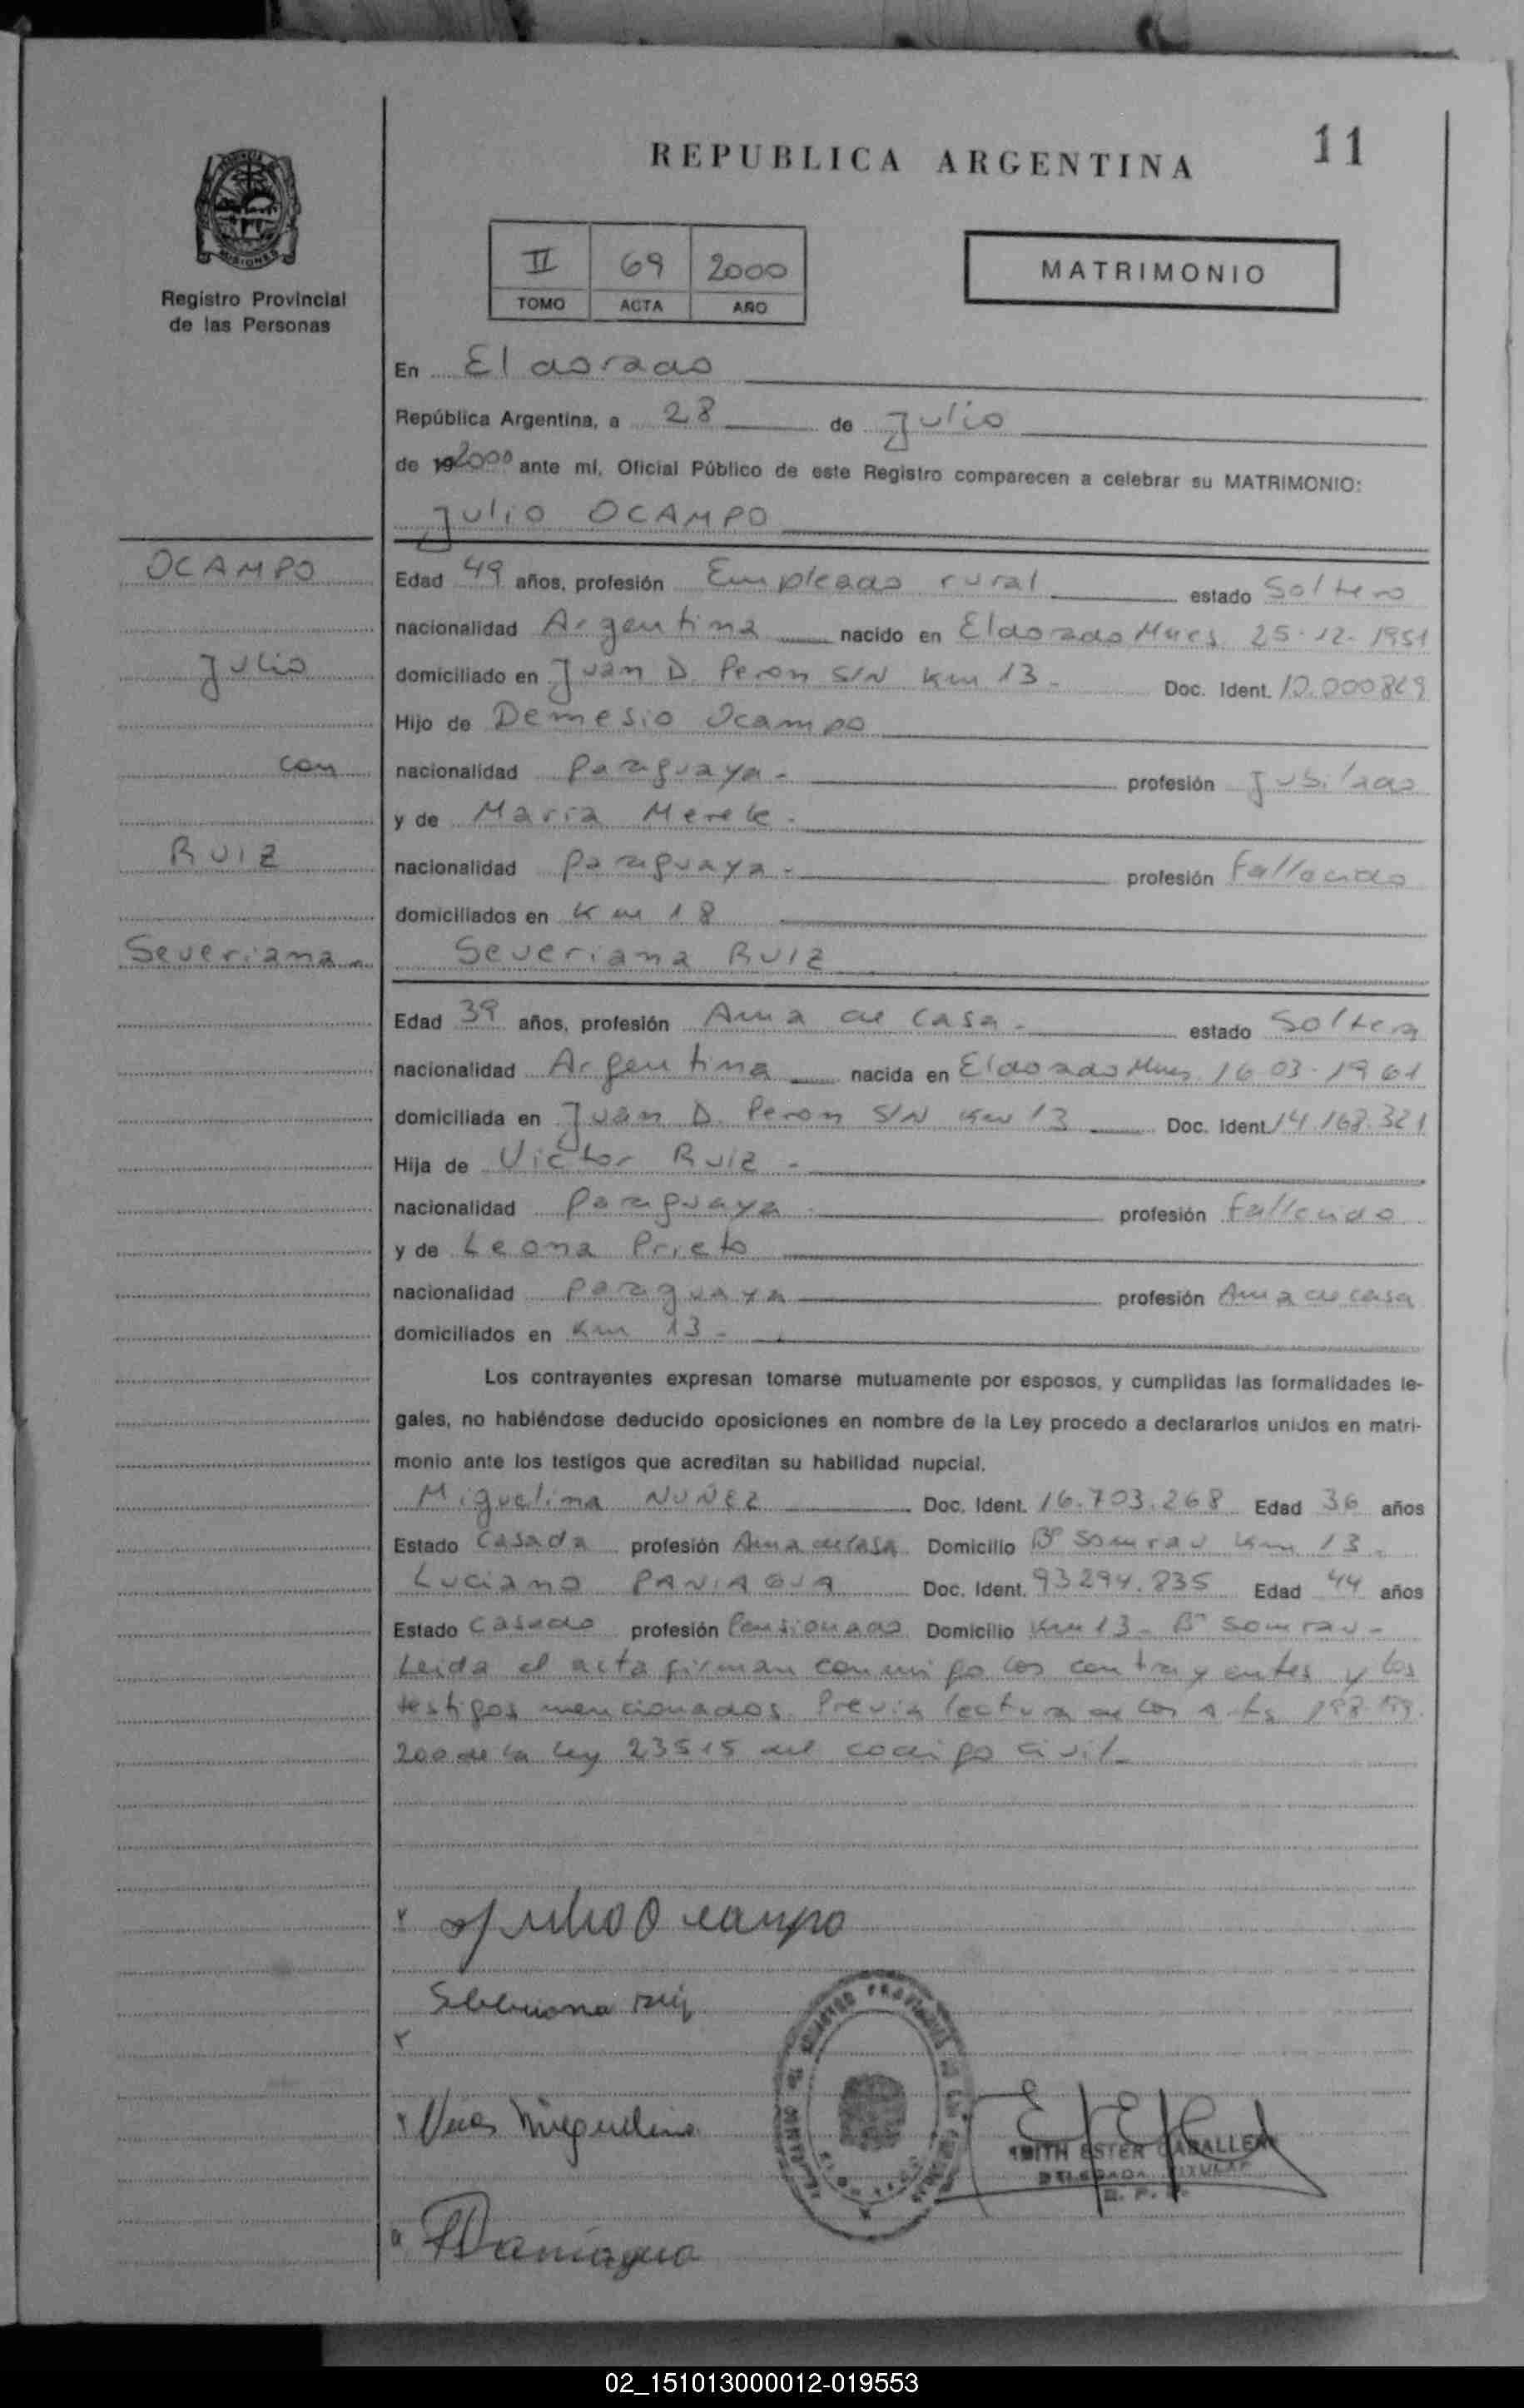 11
REPUBLICA ARGENTINA
II 69 2000
TOMO ACTA AÑO
MATRIMONIO
Registro Provincial
de las Personas
En Eldorado
República Argentina, a 28 de Julio
de 192000 ante mí, Oficial Público de este Registro comparecen a celebrar su MATRIMONIO:
Julio OCAMPO
OCAMPO
Julio
con
RUIZ
Severiana
Edad 49 años, profesión Empleado rural estado Soltero
nacionalidad Argentina nacido en Eldorado Mnes 25-12-1951
domiciliado en Juan D. Peron S/N Km 13 Doc. Ident. 10.000829
Hijo de Demesio Ocampo
nacionalidad paraguaya - profesión Jubilado
y de Maria Merele
nacionalidad paraguaya - profesión Fallecido
domiciliados en Km 18
Severiana RUIZ
Edad 39 años, profesión Ama de casa - estado Soltera
nacionalidad Argentina nacida en Eldorado Mnes 16-03-1961
domiciliada en Juan D. Peron S/N Km 13 Doc. Ident. 14.168.321
Hija de Victor Ruiz -
nacionalidad paraguaya profesión Fallecido
y de Leona Prieto
nacionalidad paraguaya profesión Ama de casa
domiciliados en Km 13 -
Los contrayentes expresan tomarse mutuamente por esposos, y cumplidas las formalidades le-
gales, no habiéndose deducido oposiciones en nombre de la Ley procedo a declararlos unidos en matri-
monio ante los testigos que acreditan su habilidad nupcial.
Miguelina NUÑEZ Doc. Ident. 16.703.268 Edad 36 años
Estado Casada profesión Ama de casa Domicilio Bº Km 13 -
Luciano PANIAGUA Doc. Ident. 93294.835 Edad 44 años
Estado Casado profesión Pensionado Domicilio Km 13 - Bº
Leida el acta firman conmigo los contrayentes y los
testigos mencionados. Previa lectura de los Arts 198.199.
200 de la ley 23515 del codigo civil -
Julio Ocampo
Seberiana ruiz
Miguelina
Paniagua
EDITH ESTER CABALLERO
DELEGADA TITULAR
02_151013000012-019553